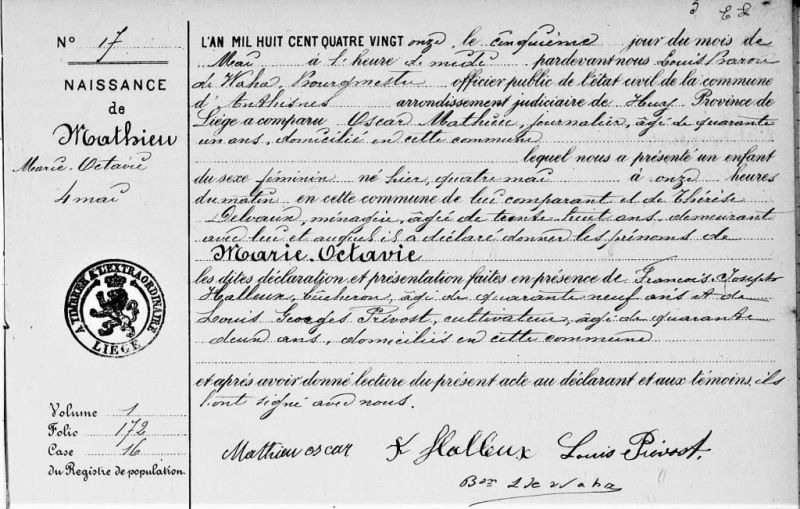 N° 17
NAISSANCE
de
Mathieu
Marie-Octavie
4 mai
A TIMBRER A L'EXTRAORDINAIRE
LIÈGE
Volume 1
Folio 172
Case 16
du Registre de population.
L'AN MIL HUIT CENT QUATRE VINGT onze, le cinquième jour du mois de
Mai à l'heure de midi pardevant nous Louis Baron
de Waha, Bourgmestre officier public de l'état civil de la commune
d'Anthisnes arrondissement judiciaire de Huy Province de
Liège a comparu Oscar Mathieu, journalier, âgé de quarante
un ans, domicilié en cette commune
lequel nous a présenté un enfant
du sexe féminin né hier, quatre mai à onze heures
du matin en cette commune de lui comparant et de Thérèse
Delvaux, ménagère, âgée de trente huit ans, demeurant
avec lui et auquel il a déclaré donner les prénoms de
Marie-Octavie
les dites déclaration et présentation faites en présence de François-Joseph
Halleux, bûcheron, âgé de quarante neuf ans et de
Louis Georges Prévost, cultivateur, âgé de quarante
deux ans, domiciliés en cette commune
et après avoir donné lecture du présent acte au déclarant et aux témoins, ils
l'ont signé avec nous.
Mathieu oscar Halleux Louis Prévost.
Bon L de Waha